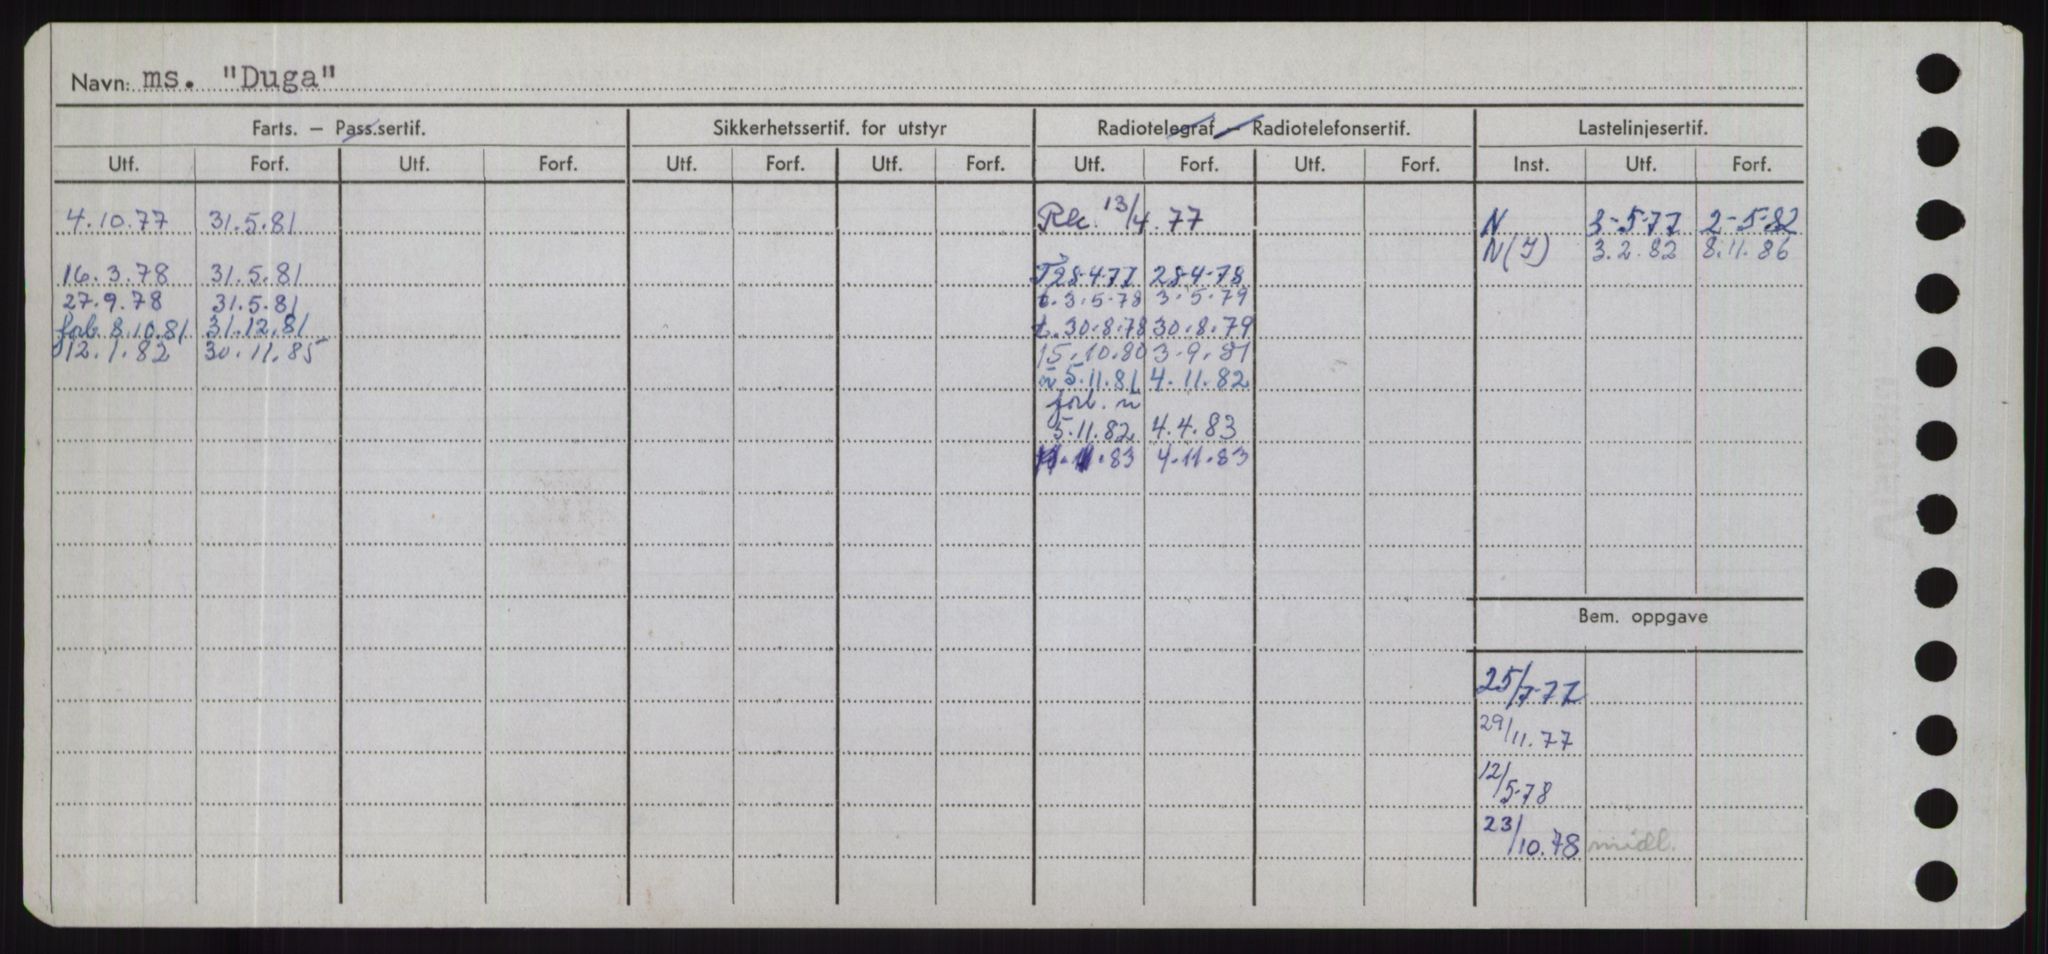 Navn: ms. "Duga"
Farts. – Pass.sertif. Sikkerhetssertif. for utstyr Radiotelegraf – Radiotelefonsertif. Lastelinjesertif.
Utf. Forf. Utf. Forf. Utf. Forf. Utf. Forf. Utf. Forf. Utf. Forf. Inst. Utf. Forf.
4.10.77 31.5.81 13/4.77 N 3-5-77 2-5-82
N(I) 3.2.82 8.11.86
16.3.78 31.5.81 28-4-77 28-4-78
27.9.78 31.5.81 t. 3.5.78 3.5.79
forl. 8.10.81 31.12.81 t. 30.8.78 30.8.79
12.1.82 30.11.85 15.10.80 3.9.81
n 5.11.81 4.11.82
forl. n
5.11.82 4.4.83
83 4.11.83
Bem. oppgave
25/7-77
29/11.77
12/5-78
23/10.78 midl.